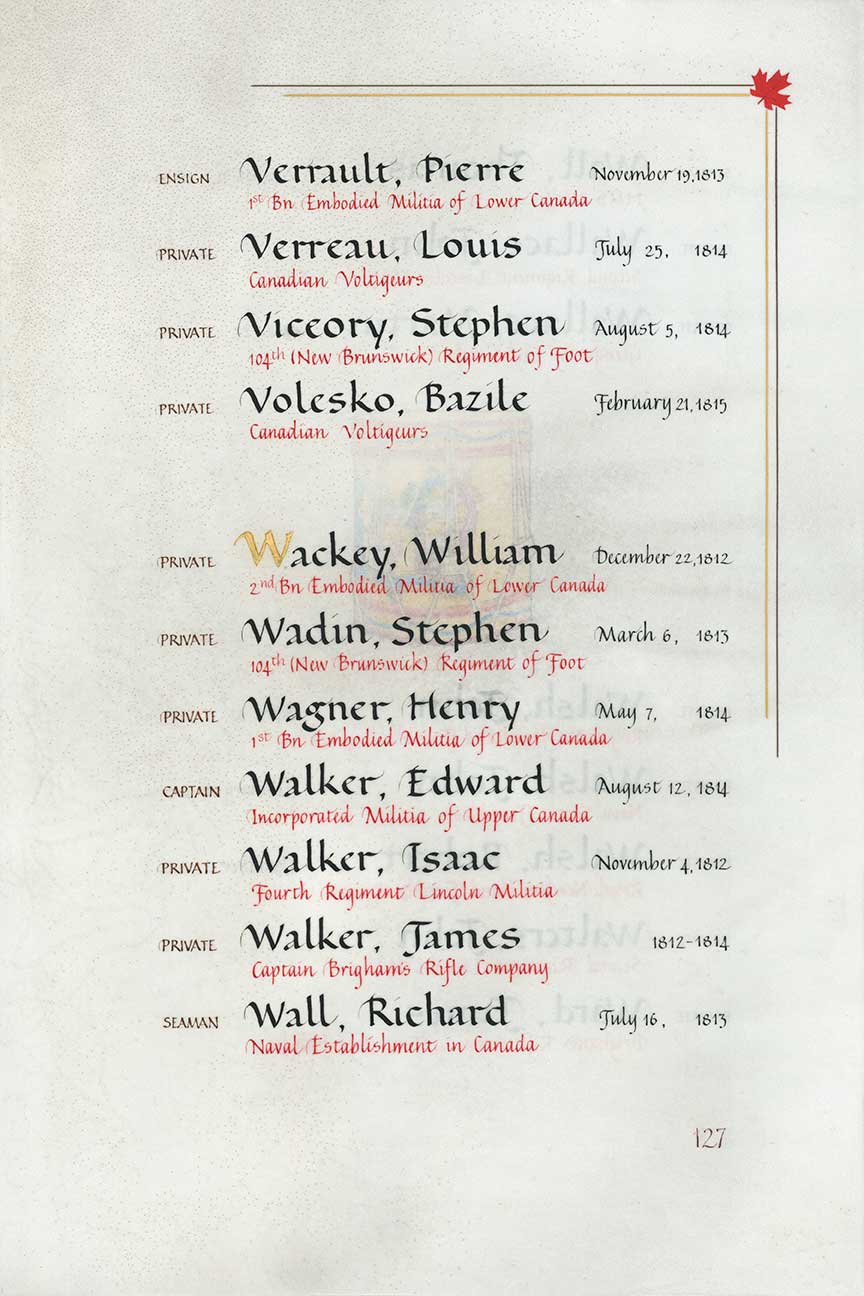 ENSIGN Verrault, Pierre November 19, 1813
1st Bn Embodied Militia of Lower Canada
PRIVATE Verreau, Louis July 25, 1814
Canadian Voltigeurs
PRIVATE Viceory, Stephen August 5, 1814
104th (New Brunswick) Regiment of Foot
PRIVATE Volesko, Bazile February 21, 1815
Canadian Voltigeurs
PRIVATE Wackey, William December 22, 1812
2nd Bn Embodied Militia of Lower Canada
PRIVATE Wadin, Stephen March 6, 1813
104th (New Brunswick) Regiment of Foot
PRIVATE Wagner, Henry May 7, 1814
1st Bn Embodied Militia of Lower Canada
CAPTAIN Walker, Edward August 12, 1814
Incorporated Militia of Upper Canada
PRIVATE Walker, Isaac November 4, 1812
Fourth Regiment Lincoln Militia
PRIVATE Walker, James 1812-1814
Captain Brigham's Rifle Company
SEAMAN Wall, Richard July 16, 1813
Naval Establishment in Canada
127